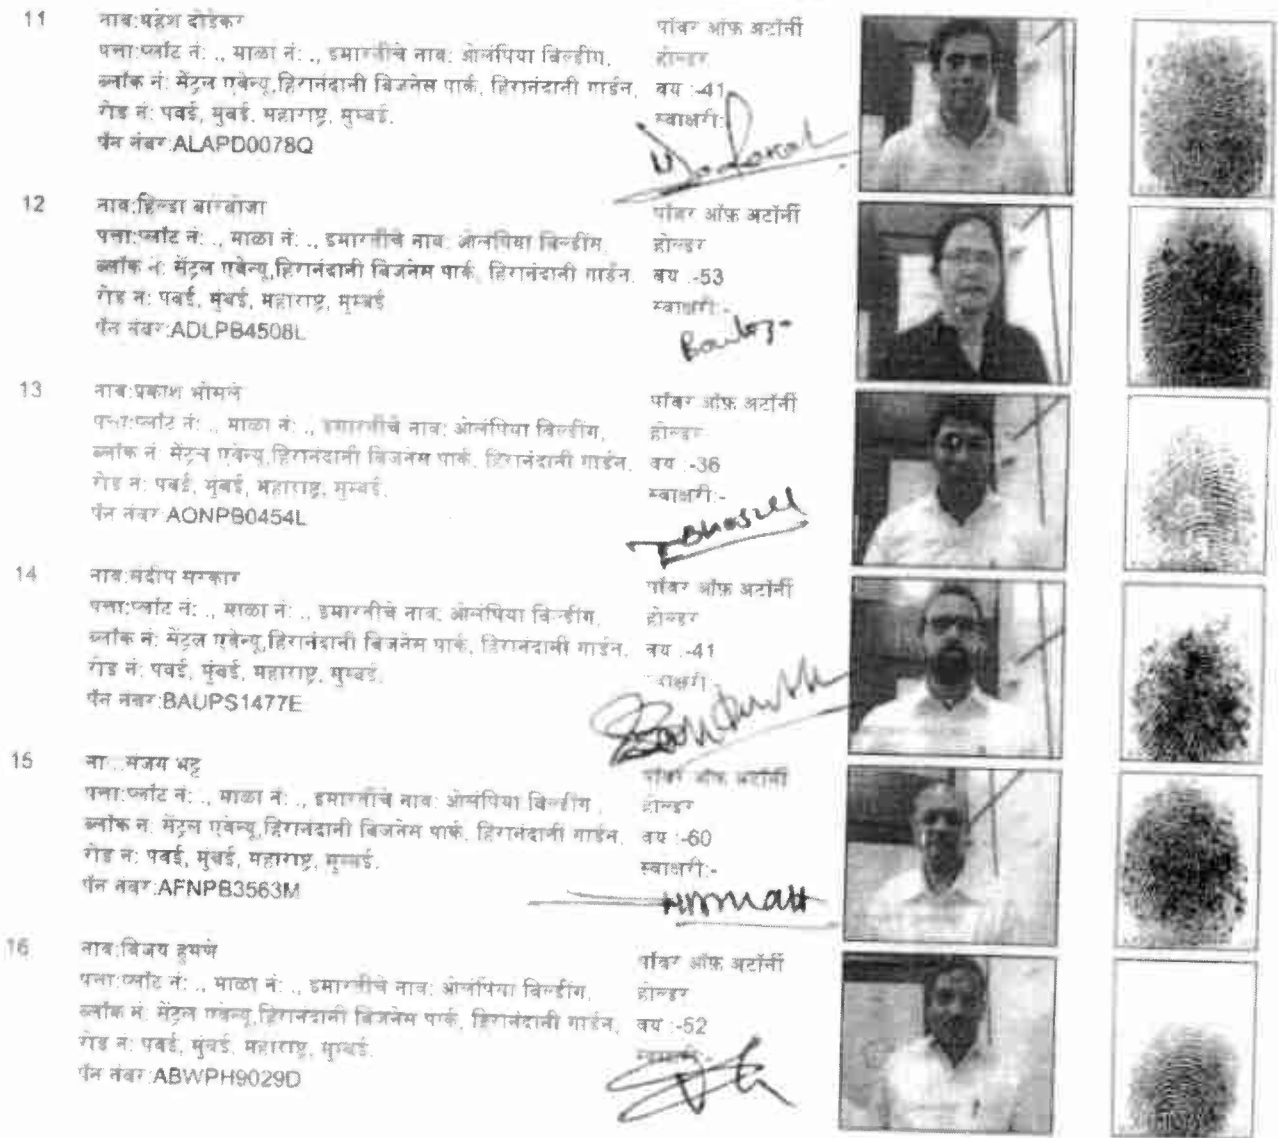 11
नाव:महेश दोडेकर
पत्ता:प्लॉट नं: ., माळा नं: ., इमारतीचे नाव: ओलंपिया बिल्डींग,
ब्लॉक नं: सेंट्रल एवेन्यू,हिरानंदानी बिजनेस पार्क, हिरानंदानी गार्डन,
रोड नं: पवई, मुंबई, महाराष्ट्र, मुम्बई.
पॅन नंबर:ALAPD0078Q
पॉवर ऑफ़ अटॉर्नी
होल्डर
वय :-41
स्वाक्षरी:
12
नाव:हिल्डा बारबोजा
पत्ता:प्लॉट नं: ., माळा नं: ., इमारतीचे नाव: ओलंपिया बिल्डींग,
ब्लॉक नं: सेंट्रल एवेन्यू,हिरानंदानी बिजनेस पार्क, हिरानंदानी गार्डन,
रोड नं: पवई, मुंबई, महाराष्ट्र, मुम्बई
पॅन नंबर:ADLPB4508L
पॉवर ऑफ़ अटॉर्नी
होल्डर
वय :-53
स्वाक्षरी:-
13
नाव:प्रकाश भोसले
पत्ता:प्लॉट नं: ., माळा नं: ., इमारतीचे नाव: ओलंपिया बिल्डींग,
ब्लॉक नं: सेंट्रल एवेन्यू,हिरानंदानी बिजनेस पार्क, हिरानंदानी गार्डन,
रोड नं: पवई, मुंबई, महाराष्ट्र, मुम्बई.
पॅन नंबर:AONPB0454L
पॉवर ऑफ़ अटॉर्नी
होल्डर
वय :-36
स्वाक्षरी:-
14
नाव:संदीप सरकार
पत्ता:प्लॉट नं: ., माळा नं: ., इमारतीचे नाव: ओलंपिया बिल्डींग,
ब्लॉक नं: सेंट्रल एवेन्यू,हिरानंदानी बिजनेस पार्क, हिरानंदानी गार्डन,
रोड नं: पवई, मुंबई, महाराष्ट्र, मुम्बई.
पॅन नंबर:BAUPS1477E
पॉवर ऑफ़ अटॉर्नी
होल्डर
वय :-41
15
संजय भट्ट
पत्ता:प्लॉट नं: ., माळा नं: ., इमारतीचे नाव: ओलंपिया बिल्डींग ,
ब्लॉक नं: सेंट्रल एवेन्यू,हिरानंदानी बिजनेस पार्क, हिरानंदानी गार्डन,
रोड नं: पवई, मुंबई, महाराष्ट्र, मुम्बई.
पॅन नंबर:AFNPB3563M
पॉवर ऑफ़ अटॉर्नी
होल्डर
वय :-60
स्वाक्षरी:-
16
नाव:विजय हुमणे
पत्ता:प्लॉट नं: ., माळा नं: ., इमारतीचे नाव: ओलंपिया बिल्डींग,
ब्लॉक नं: सेंट्रल एवेन्यू,हिरानंदानी बिजनेस पार्क, हिरानंदानी गार्डन,
रोड नं: पवई, मुंबई, महाराष्ट्र, मुम्बई.
पॅन नंबर:ABWPH9029D
पॉवर ऑफ़ अटॉर्नी
होल्डर
वय :-52